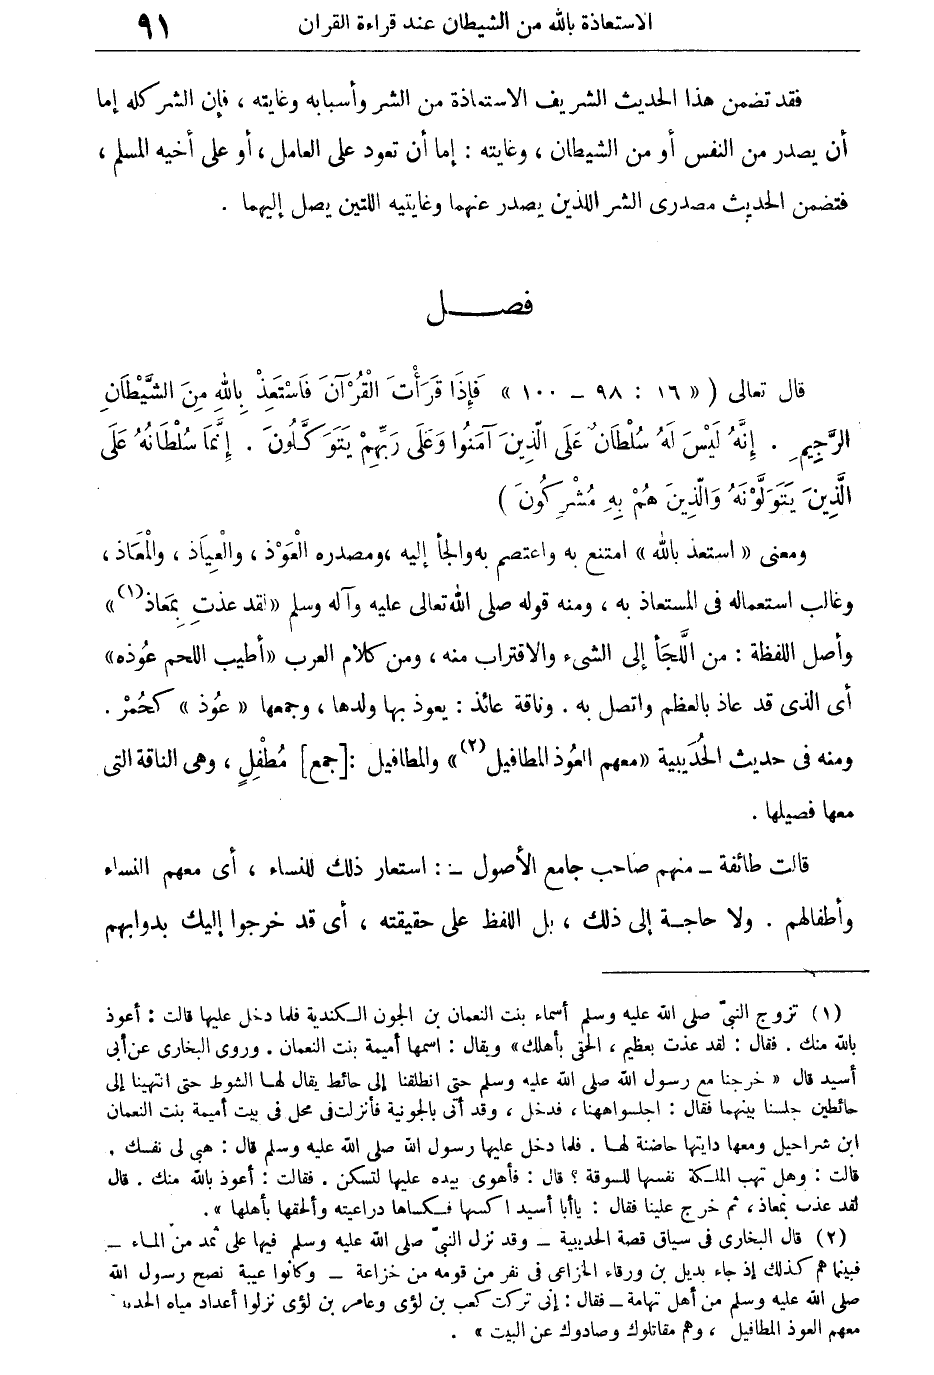 الاستعاذة بالله من الشيطان عند قراءة القران ٩١
فقد تضمن هذا الحديث الشريف الاستعاذة من الشر وأسبابه وغايته ، فإن الشر كله إما
أن يصدر من النفس أو من الشيطان ، وغايته : إما أن تعود على العامل ، أو على أخيه المسلم ،
فتضمن الحديث مصدرى الشر اللذين يصدر عنهما وغايتيه اللتين يصل إليهما .
فصـــــل
قال تعالى ( « ١٦ : ٩٨ – ١٠٠ » فَإِذَا قَرَأْتَ الْقُرْآنَ فَاسْتَعِذْ بِاللهِ مِنَ الشَّيْطَانِ
الرَّجِيمِ . إِنَّهُ لَيْسَ لَهُ سُلْطَانٌ عَلَى الَّذِينَ آمَنُوا وَعَلَى رَبِّهِمْ يَتَوَكَّلُونَ . إِنَّمَا سُلْطَانُهُ عَلَى
الَّذِينَ يَتَوَلَّوْنَهُ وَالَّذِينَ هُمْ بِهِ مُشْرِكُونَ )
ومعنى « استعذ بالله » امتنع به واعتصم به والجأ إليه ،ومصدره العَوْذ ، والعِيَاذ ، والمَعَاذ ،
وغالب استعماله فى المستعاذ به ، ومنه قوله صلى الله تعالى عليه وآله وسلم « لقد عذتِ بِمَعاذ(١) »
وأصل اللفظة : من اللَّجَأ إلى الشىء والاقتراب منه ، ومن كلام العرب «أطيب اللحم عُوذه»
أى الذى قد عاذ بالعظم واتصل به . وناقة عائذ : يعوذ بها ولدها ، وجمعها « عُوذ » كحُمْر .
ومنه فى حديث الحُدَيبية «معهم العُوذ المطافيل(٢)» والمطافيل :[جمع] مُطْفِلٍ ، وهى الناقة التى
معها فصيلها .
قالت طائفة – منهم صاحب جامع الأصول – : استعار ذلك للنساء ، أى معهم النساء
وأطفالهم . ولا حاجة إلى ذلك ، بل اللفظ على حقيقته ، أى قد خرجوا إليك بدوابهم
(١) تزوج النبىّ صلى الله عليه وسلم أسماء بنت النعمان بن الجون الكندية فلما دخل عليها قالت : أعوذ
بالله منك . فقال : لقد عذت بعظيم ، الحقى بأهلك» ويقال : اسمها أميمة بنت النعمان . وروى البخارى عن أبى
أسيد قال « خرجنا مع رسول الله صلى الله عليه وسلم حتى انطلقنا إلى حائط يقال لهـا الشوط حتى انتهينا إلى
حائطين جلسنا بينهما فقال : اجلسواههنا ، فدخل ، وقد أتى بالجونية فأنزلت فى محل فى بيت أميمة بنت النعمان
ابن شراحيل ومعها دايتها حاضنة لهـا . فلما دخل عليها رسول الله صلى الله عليه وسلم قال : هبى لى نفسك .
قالت : وهل تهب الملكة نفسها للسوقة ؟ قال : فأهوى بيده عليها لتسكن . فقالت : أعوذ بالله منك . قال
لقد عذت بمعاذ ، ثم خرج علينا فقال : ياأبا أسيد اكسها فكساها دراعيته وألحقها بأهلها » .
(٢) قال البخارى فى سياق قصة الحديبية – وقد نزل النبىّ صلى الله عليه وسلم فيها على ثمد من المـاء –
فبينما هم كذلك إذ جاء بديل بن ورقاء الخزاعى فى نفر من قومه من خزاعة – وكانوا عيبة نصح رسول الله
صلى الله عليه وسلم من أهل تهامة – فقال : إنى تركت كعب بن لؤى وعامر بن لؤى نزلوا أعداد مياه
معهم العوذ المطافيل ، وهم مقاتلوك وصادوك عن البيت » .